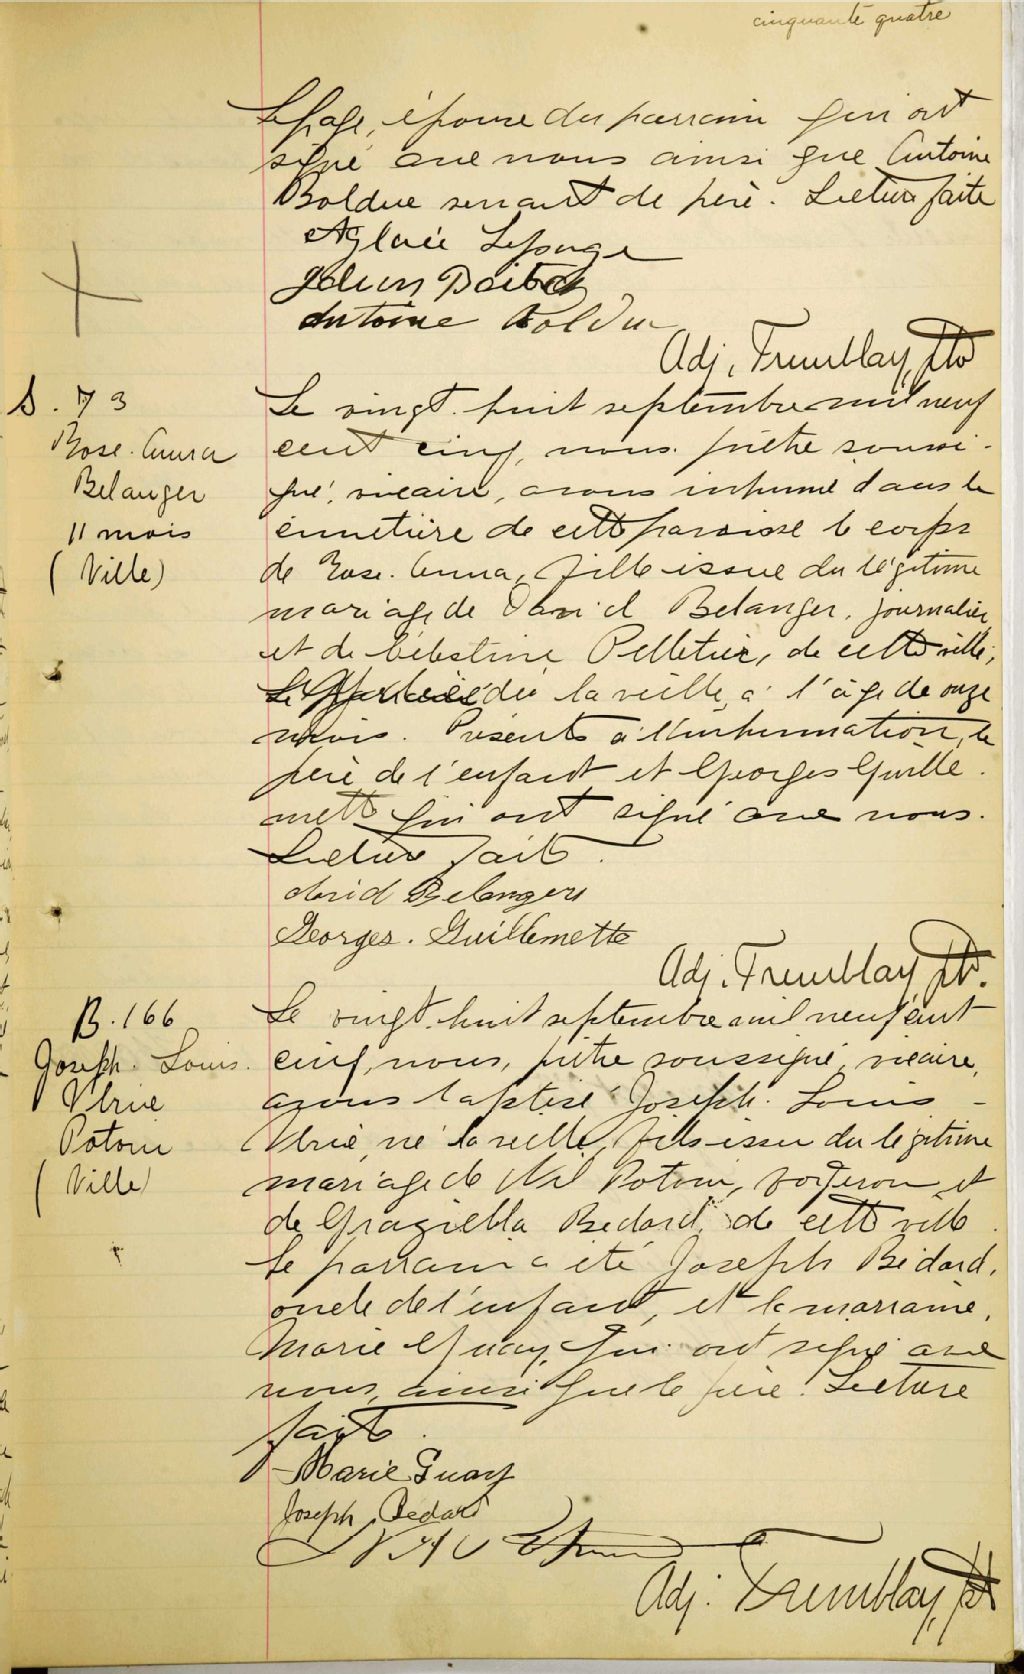 cinquante quatre
Lepage, épouse du parrain qui ont
signé avec nous ainsi que Antoine
Bolduc servant de père. Lecture faite
Aglaée Lepage
Antoine Bolduc
Adj. Tremblay, ptre
S. 73
Rose-Anna
Belanger
11 mois
(Ville)
Le vingt-huit septembre mil neuf
cent cinq, nous, prêtre soussi-
gné, vicaire, avons inhumé dans le
cimetière de cette paroisse le corps
de Rose-Anna, fille issue du légitime
mariage de David Belanger, journalier,
et de Célestine Pelletier, de cette ville,
la veille, à l'âge de onze
mois. Présents à l'inhumation, le
père de l'enfant et Georges Guille-
mette qui ont signé avec nous.
Lecture faite.
david Belangers
Georges. Guillemette
Adj. Tremblay ptr.
B. 166
Joseph-Louis
(Ville)
Le vingt-huit septembre mil neuf cent
cinq, nous, prêtre soussigné, vicaire,
avons baptisé Joseph-Louis-
né la veille, fils issu du légitime
mariage de Potvin, forgeron, et
de Graziella Bedard, de cette ville.
Le parrain a été Joseph Bédard,
oncle de l'enfant, et la marraine,
Marie Guay, qui ont signé avec
nous, ainsi que le père. Lecture
faite.
Marie Guay
Joseph Bedard
Adj. Tremblay, pt